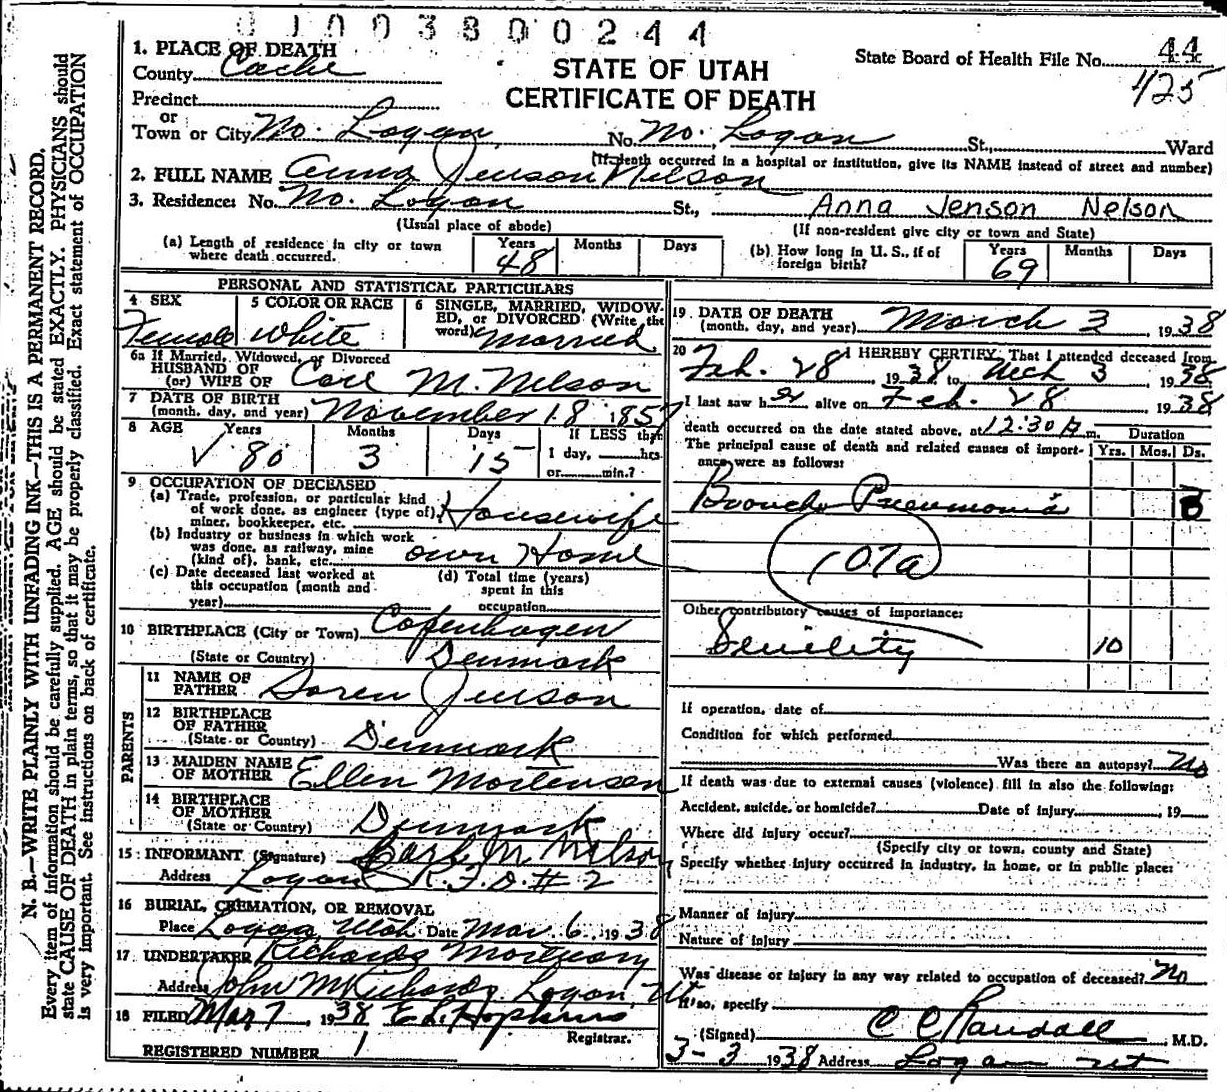 0 1 0 0 3 8 0 0 2 4 4
1. PLACE OF DEATH
County Cache
Precinct
or
Town or City No. Logan, No. No. Logan St., Ward
STATE OF UTAH
CERTIFICATE OF DEATH
State Board of Health File No. 44
425
(If death occurred in a hospital or institution, give its NAME instead of street and number)
2. FULL NAME Anna Jenson Nelson
3. Residence: No. No. Logan St., Anna Jenson Nelson
(Usual place of abode) (If non-resident give city or town and State)
(a) Length of residence in city or town where death occurred. Years 48 Months Days
(b) How long in U. S., if of foreign birth? Years 69 Months Days
PERSONAL AND STATISTICAL PARTICULARS
4 SEX Female
5 COLOR OR RACE White
6 SINGLE, MARRIED, WIDOWED, or DIVORCED (Write the word) Married
6a If Married, Widowed, or Divorced
HUSBAND OF
(or) WIFE OF Carl M. Nelson
7 DATE OF BIRTH
(month, day, and year) November 18 1857
8 AGE Years 80 Months 3 Days 15
If LESS than
1 day, hrs.
or min.?
9 OCCUPATION OF DECEASED
(a) Trade, profession, or particular kind
of work done, as engineer (type of),
miner, bookkeeper, etc. Housewife
(b) Industry or business in which work
was done, as railway, mine
(kind of), bank, etc. own Home
(c) Date deceased last worked at
this occupation (month and
year)
(d) Total time (years)
spent in this
occupation
10 BIRTHPLACE (City or Town) Copenhagen
(State or Country) Denmark
PARENTS
11 NAME OF
FATHER Soren Jenson
12 BIRTHPLACE
OF FATHER
(State or Country) Denmark
13 MAIDEN NAME
OF MOTHER Ellen Mortensen
14 BIRTHPLACE
OF MOTHER
(State or Country) Denmark
15 INFORMANT (Signature) Carl M Nelson
Address Logan R.F.D. #2
16 BURIAL, CREMATION, OR REMOVAL
Place Logan, Utah Date Mar. 6, 1938
17 UNDERTAKER Richards Mortuary
Address John M Richards Logan, Ut
18 FILED Mar 7, 1938 E L Hopkins
Registrar.
REGISTERED NUMBER 1
19 DATE OF DEATH
(month, day, and year) March 3 1938
20 I HEREBY CERTIFY, That I attended deceased from
Feb. 28 1938 to Mch 3 1938
I last saw her alive on Feb. 28 1938
death occurred on the date stated above, at 12:30 A m. Duration
The principal cause of death and related causes of importance were as follows: Yrs. Mos. Ds.
Broncho Pneumonia
107a
Other contributory causes of importance:
Senility 10
If operation, date of
Condition for which performed
Was there an autopsy? No
If death was due to external causes (violence) fill in also the following:
Accident, suicide, or homicide? Date of injury , 19
Where did injury occur?
(Specify city or town, county and State)
Specify whether injury occurred in industry, in home, or in public place:
Manner of injury
Nature of injury
Was disease or injury in any way related to occupation of deceased? No
If so, specify
(Signed) C C Randall, M.D.
3-3 1938 Address Logan Ut
N. B.—WRITE PLAINLY WITH UNFADING INK—THIS IS A PERMANENT RECORD.
Every item of information should be carefully supplied. AGE should be stated EXACTLY. PHYSICIANS should
state CAUSE OF DEATH in plain terms, so that it may be properly classified. Exact statement of OCCUPATION
is very important. See instructions on back of certificate.